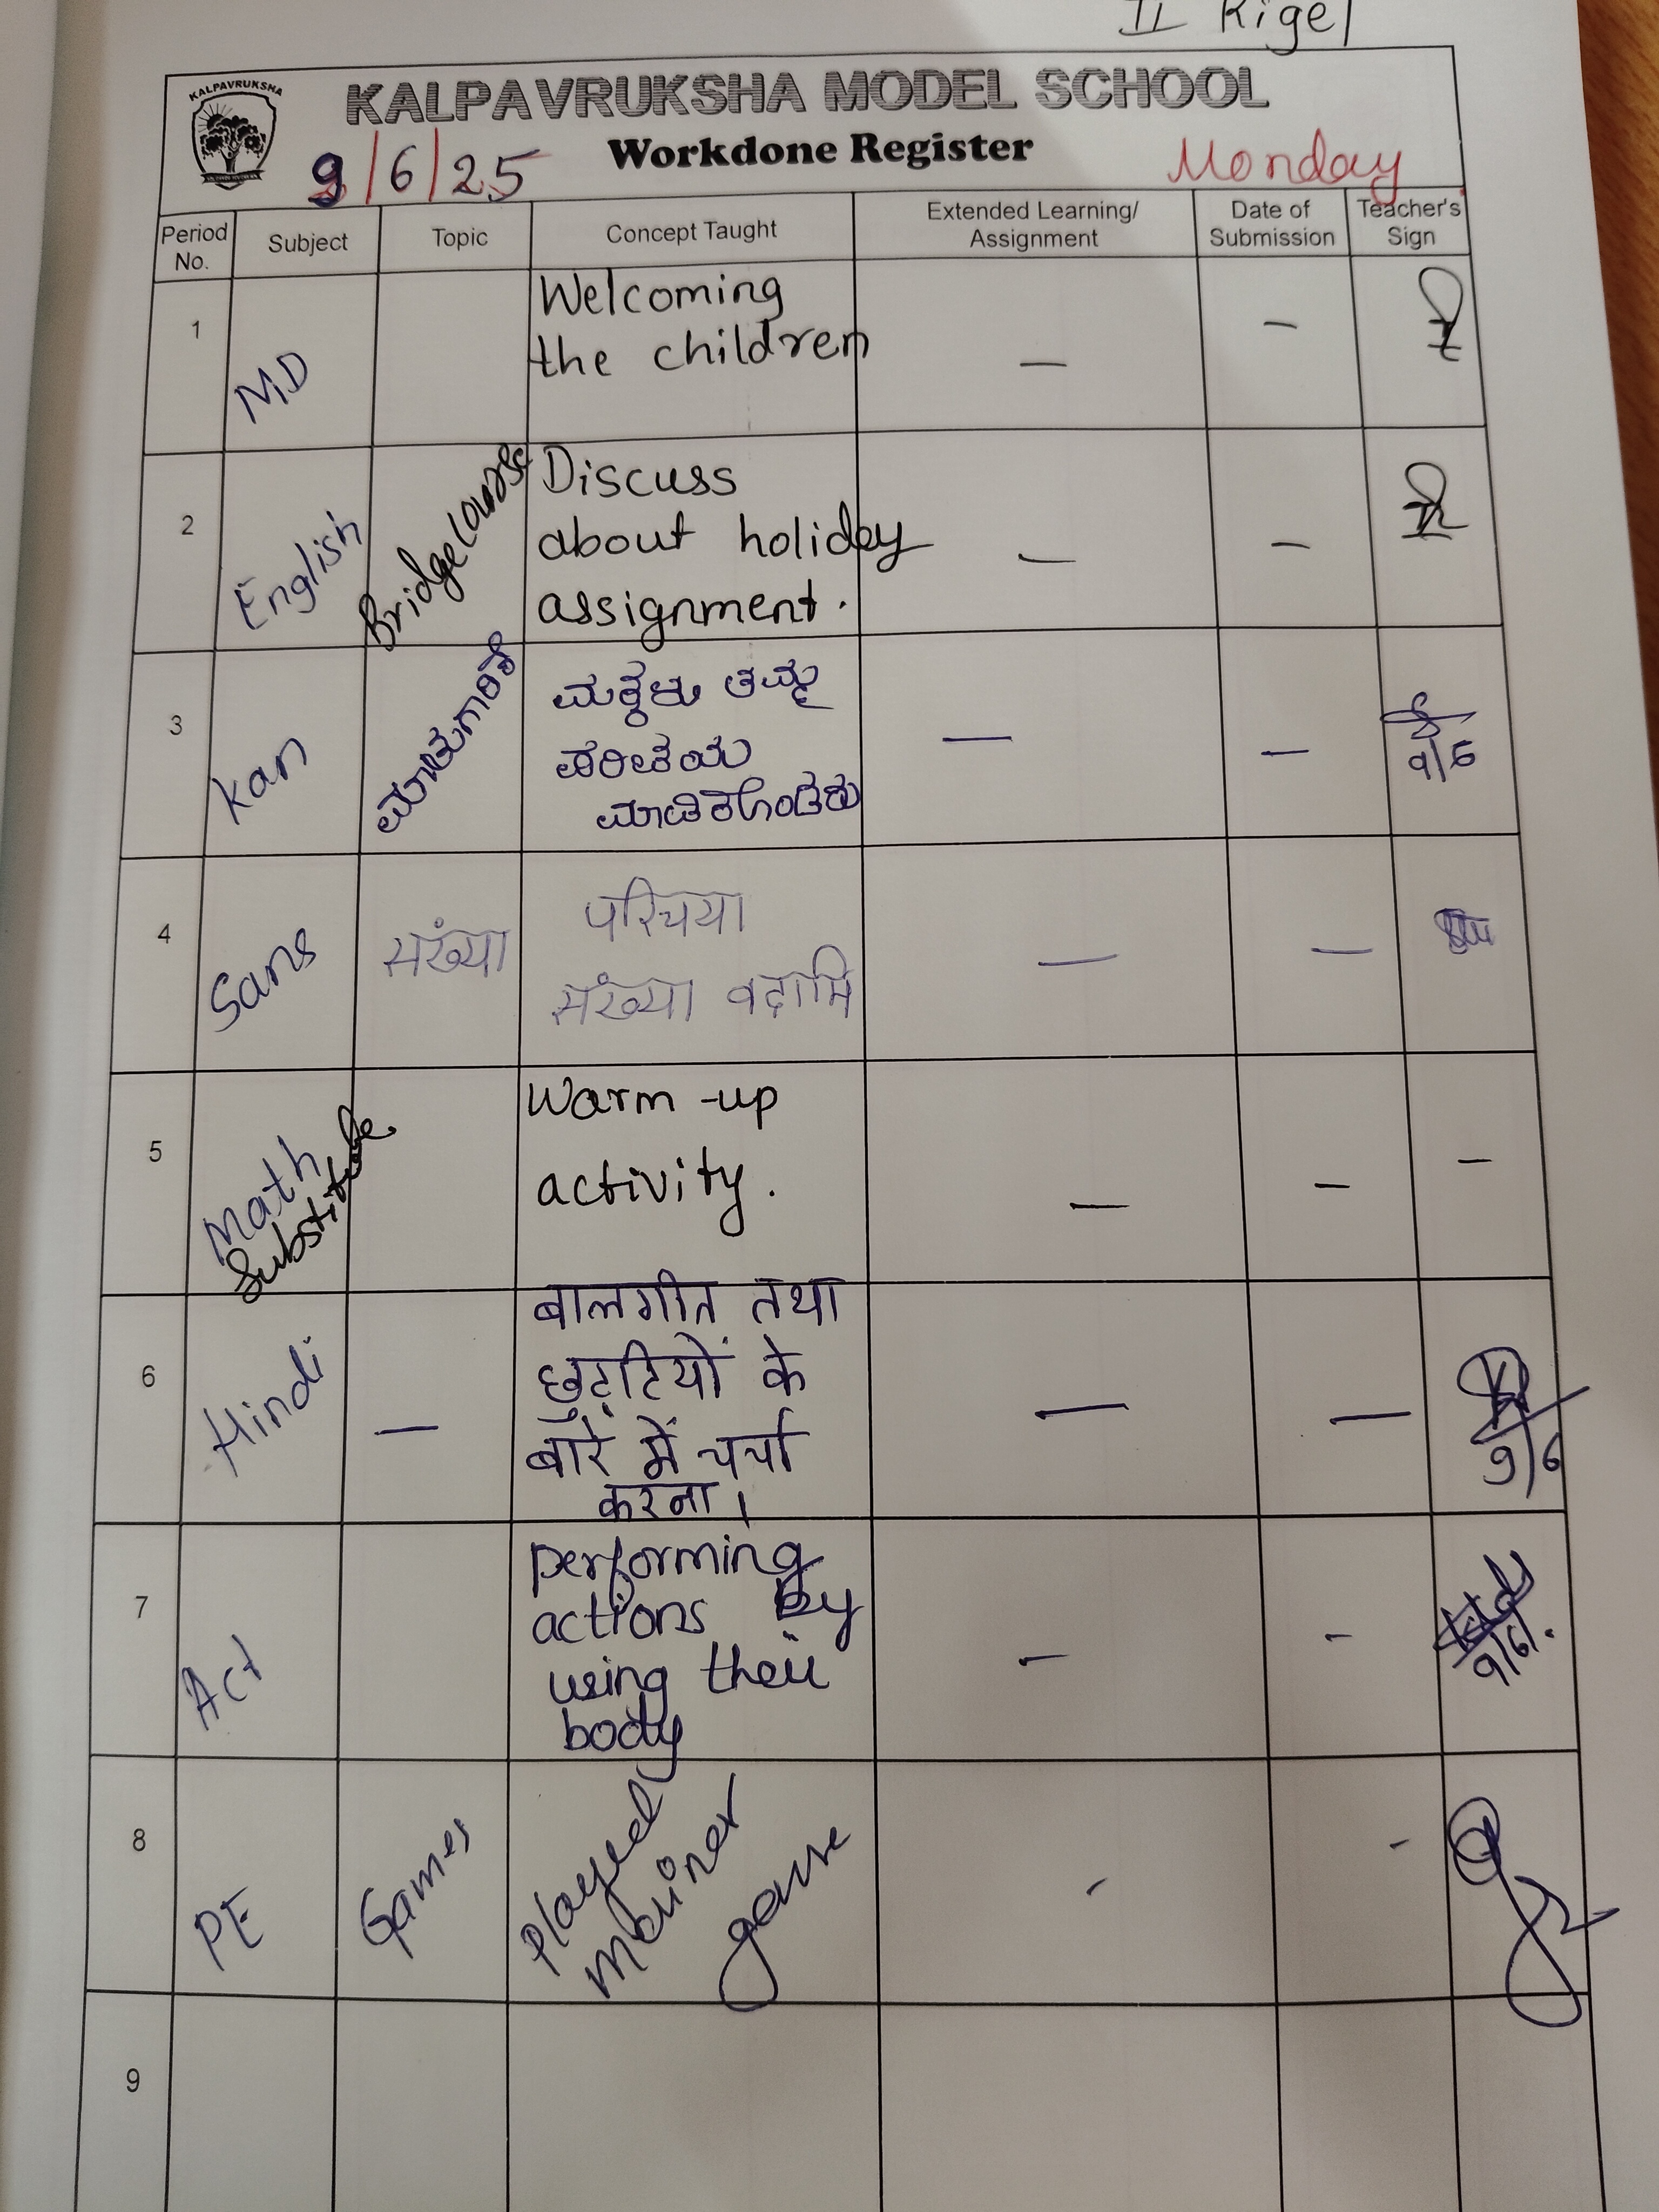 II Rigel
KALPAVRUKSHA
KALPAVRUKSHA MODEL SCHOOL
Workdone Register
9/6/25 Monday
Period No. Subject Topic Concept Taught Extended Learning/ Assignment Date of Submission Teacher's Sign
1 M.D Welcoming
the children — —
2 English Bridge Course Discuss
about holiday — —
assignment.
3 Kan ಮಾತುಗಾರಿಕೆ ಮಕ್ಕಳು ತಮ್ಮ — —
ಪರಿಚಯ 9/6
ಮಾಡಿಕೊಂಡರು
4 Sans संख्या परिचया — —
संख्या वदामि
5 Math Substitute Warm-up
activity. — — —
6 Hindi — बालगीत तथा
छुट्टियों के — —
बारे में चर्चा 9/6
करना।
7 Act performing
actions by — —
using their 9/6.
body
8 PE Games Played - -
game
9